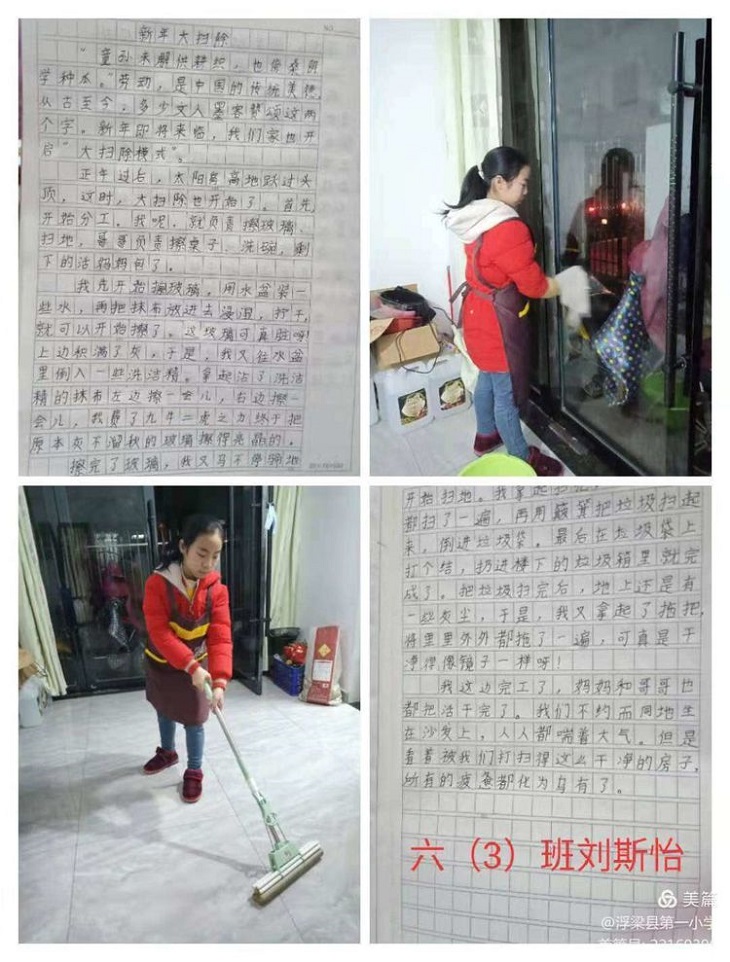 新年大扫除
“童孙未解供耕织，也傍桑阴
学种瓜。”劳动，是中国的传统美德，
从古至今，多少文人墨客赞颂这两
个字。新年即将来临，我们家也开
启“大扫除模式”。
正午过后，太阳高高地跃过头
顶，这时，大扫除也开始了。首先，
开始分工。我呢，就负责擦玻璃、
扫地，哥哥负责擦桌子、洗碗，剩
下的活妈妈包了。
我先开始擦玻璃，用水盆装一
些水，再把抹布放进去浸湿，拧干，
就可以开始擦了。这玻璃可真脏呀！
上边积满了灰，于是，我又往水盆
里倒入一些洗洁精。拿起沾了洗洁
精的抹布左边擦一会儿，右边擦一
会儿，我费了九牛二虎之力终于把
原本灰不溜秋的玻璃擦得亮晶的。
擦完了玻璃，我又马不停蹄地
开始扫地。我拿起扫
都扫了一遍，再用簸箕把垃圾扫起
来，倒进垃圾袋。最后在垃圾袋上
打个结，扔进楼下的垃圾箱里就完
成了。把垃圾扫完后，地上还是有
一些灰尘，于是，我又拿起了拖把，
将里里外外都拖了一遍，可真是干
净得像镜子一样呀！
我这边完工了，妈妈和哥哥也
都把活干完了。我们不约而同地坐
在沙发上，人人都喘着大气。但是
看着被我们打扫得这么干净的房子，
所有的疲惫都化为乌有了。
六（3）班刘斯怡
美篇
@浮梁县第一小学